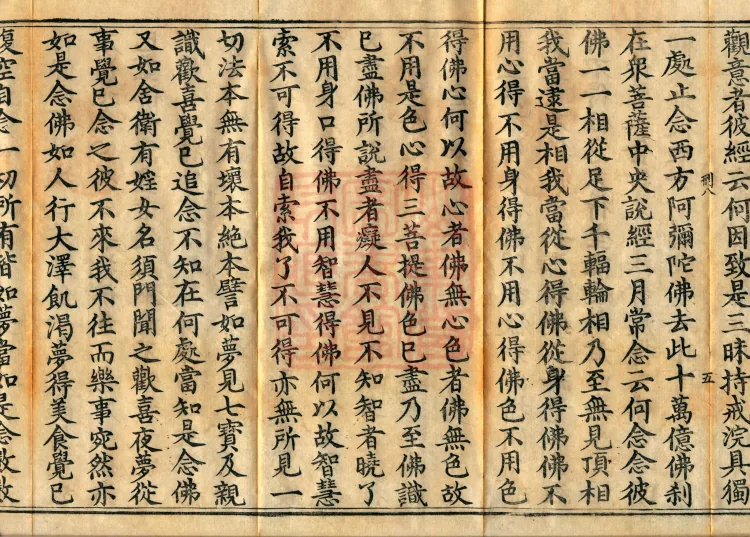 觀意者彼經云何因致是三昧持戒浣具獨
一處止念西方阿彌陀佛去此十萬億佛剎
在衆菩薩中央說經三月常念云何念念彼
佛一一相從足下千輻輪相乃至無見頂相
我當逮是相我當從心得佛從身得佛佛不
用心得不用身得佛不用心得佛色不用色
得佛心何以故心者佛無心色者佛無色故
不用是色心得三菩提佛色已盡乃至佛識
已盡佛所說盡者癡人不見不知智者曉了
不用身口得佛不用智慧得佛何以故智慧
索不可得故自索我了不可得亦無所見一
切法本無有壞本絕本譬如夢見七寶及親
識歡喜覺已追念不知在何處當知是念佛
又如舍衛有婬女名須門聞之歡喜夜夢從
事覺已念之彼不來我不往而樂事宛然亦
如是念佛如人行大澤飢渴夢得美食覺已
復空自念一切所有皆如夢當如是念數數
五